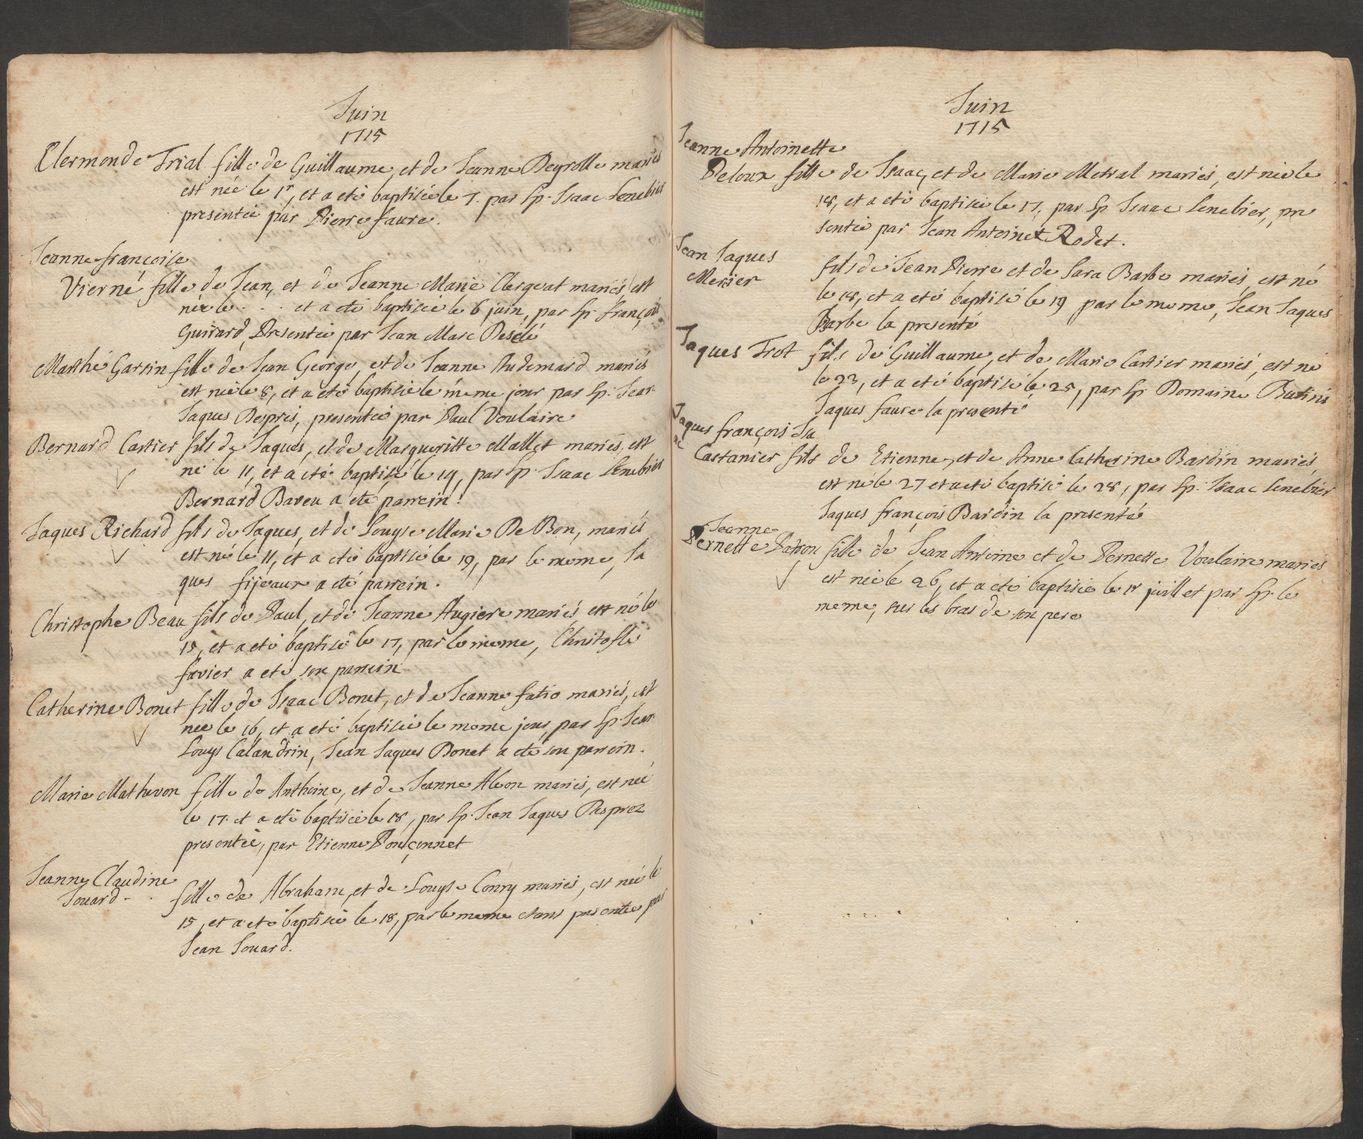 Juin
1715
Clermonde Trial fille de Guillaume, et de Jeanne Peyrolle mariés
est née le 1r, et a eté baptisée le 7. par Sp. Isaac Senebier
presentée par Pierre faure.
Jeanne françoise
Vierne fille de Jean, et de Jeanne Marie Clerget mariés est
née le . . . et a eté baptisée le 6 juin, par Sp. françois
Guirard, Presentée par Jean Marc
Marthe Garsin fille de Jean George, et de Jeanne Audemard mariés
est née le 8, et a eté baptisée le même jour par Sp. Jean
Jaques Desprès, presentée par Paul Voulaire
Bernard Cartier fils de Jaques, et de Margueritte Mallet mariés, est
né le 11, et a eté baptisé le 19, par Sp. Isaac Senebier
Bernard Bareu a eté parrein.
Jaques Richard fils de Jaques, et de Louyse Marie De Bon, mariés
est né le 11, et a eté baptisé le 19, par le meme, Ja
ques fijeaux a eté parrein.
Christophe Beau fils de Paul, et de Jeanne Augiere mariés est né le
15, et a eté baptisé le 17, par le meme, Christofle
favier a eté son parrein
Catherine Bonet fille de Isaac Bonet, et de Jeanne fatio mariés, est
née le 16, et a eté baptisée le meme jour, par Sp. Jean
Louys Calandrin, Jean Jaques Bonet a eté son parrein.
Marie Mathevon fille de Anthoine, et de Jeanne Aleon mariés, est née
le 17 et a eté baptisée le 18, par Sp. Jean Jaques Desprez
presentée, par Etienne Ponçonnet
Jeanne Claudine
Jouard . . fille de Abraham, et de Louyse Conry mariés, est née le
15, et a eté baptisée le 18, par le meme presentée par
Jean Jouard.
Juin
1715
Jeanne Antoinette
Deloux fille de Isaac, et de Marie Metral mariés, est née le
18, et a eté baptisée le 17, par Sp Isaac Senebier, pre
sentée par Jean Antoine Rodet.
Jean Jaques
Merier fils de Jean Pierre et de Sara Barbe mariés, est né
le 18, et a eté baptisé le 19 par le meme, Jean Jaques
Barbe la presenté
Jaques Trot fils de Guillaume, et de Marie Cartier mariés, est né
le 23, et a eté baptisé le 25, par Sp Domaine Butini
Jaques faure la presenté
Jaques françois
Castanier fils de Etienne, et de Anne Catherine Bardin mariés
est né le 27 et a eté baptisé le 28, par Sp. Isaac Senebier
Jaques françois Bardin la presenté
Jeanne
Pernette fille de Jean Antoine et de Pernette Voulaire mariés
est née le 26, et a eté baptisée le 1r juillet par Sp. le
meme, sur les bras de son pere